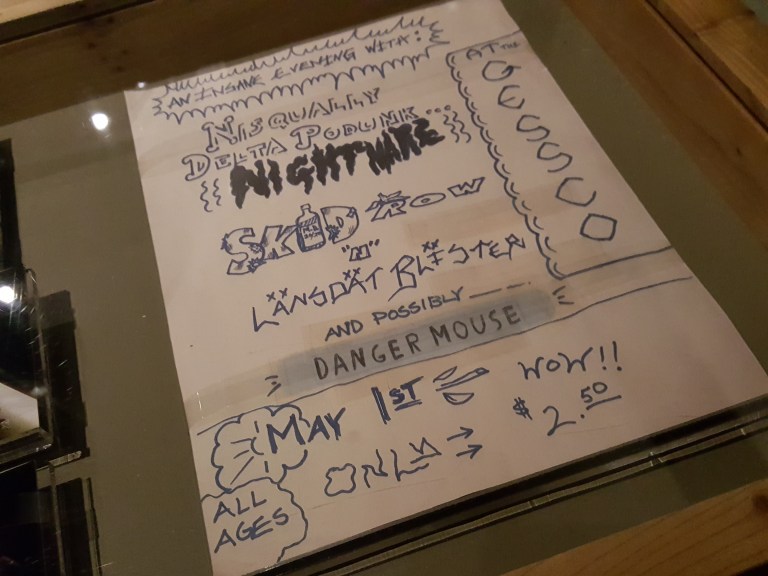 AN INSANE EVENING WITH:
NISQUALLY
DELTA PODUNK...
NIGHTMARE
SKID ROW
"N"
LÄNSDAT BLÏSTER
AND POSSIBLY
DANGER MOUSE
AT THE
GESSCO
MAY 1ST
WOW!!
ONLY → $2.50
ALL
AGES